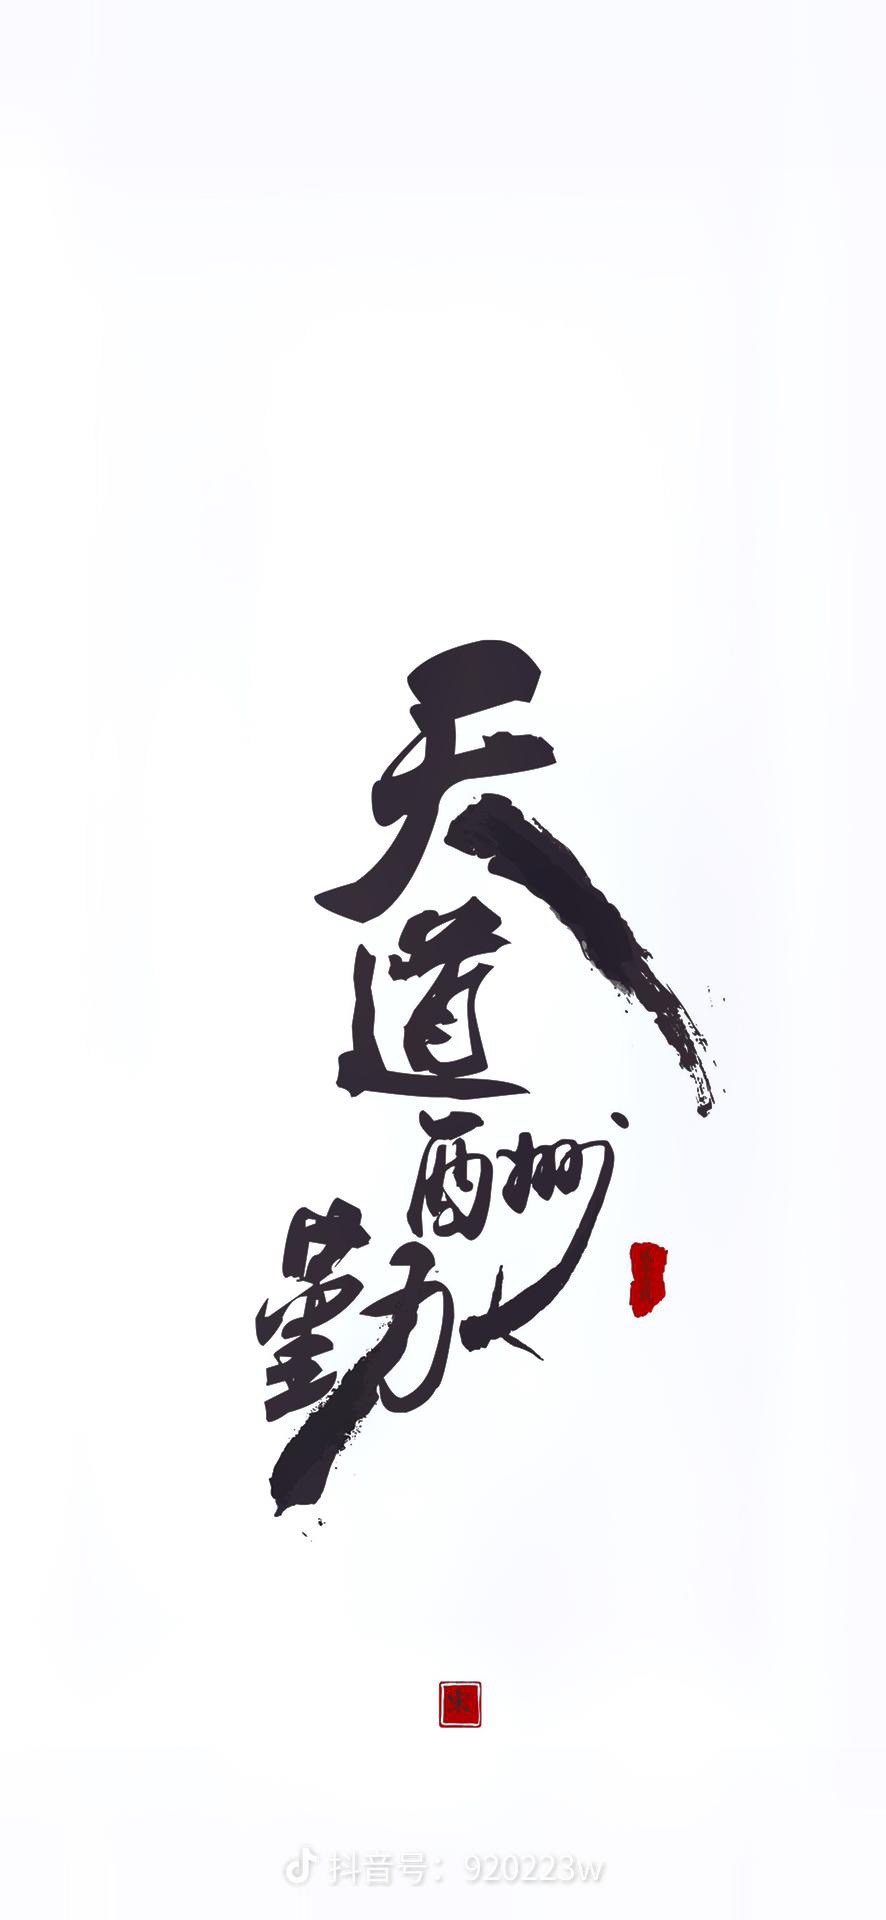 天道
酬
勤
抖音号：920223w